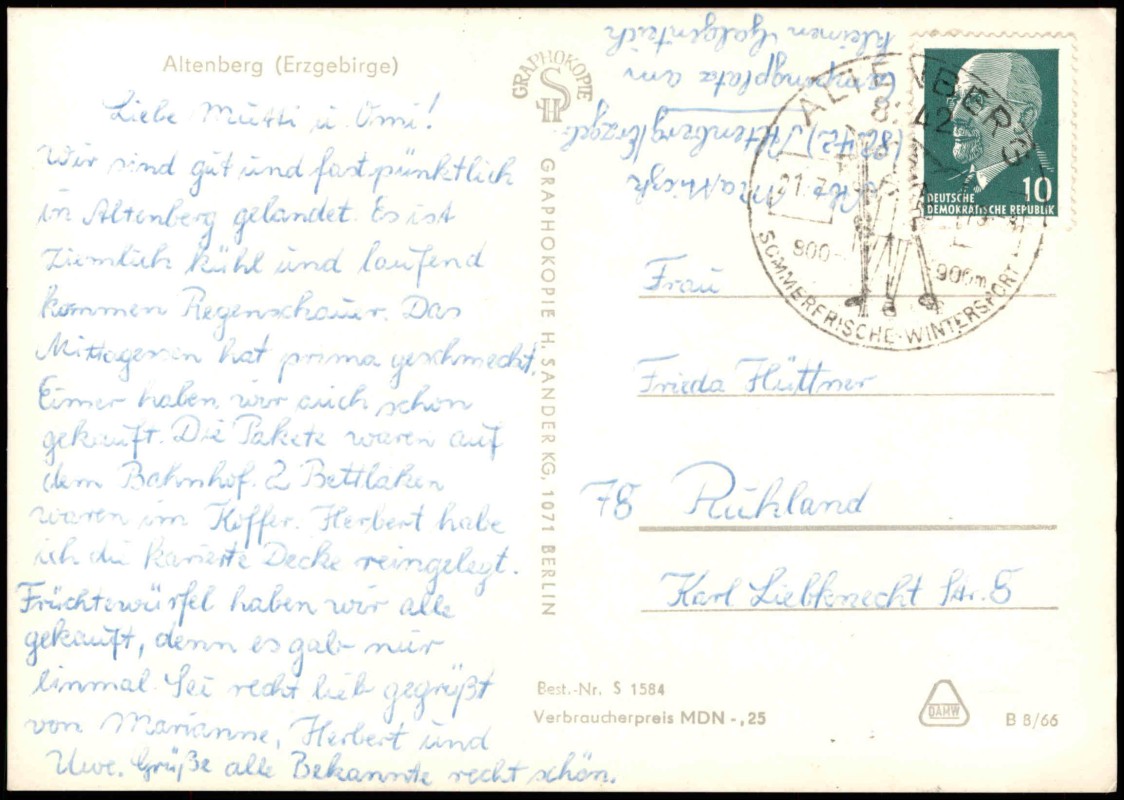 Altenberg (Erzgebirge)
Liebe Mutti u. Omi!
Wir sind gut und fast pünktlich
in Altenberg gelandet. Es ist
ziemlich kühl und laufend
kommen Regenschauer. Das
Mittagessen hat prima geschmeckt.
Eimer haben wir auch schon
gekauft. Die Pakete waren auf
dem Bahnhof. 2 Bettlaken
waren im Koffer. Herbert habe
ich die karierte Decke reingelegt.
Früchtewürfel haben wir alle
gekauft, denn es gab nur
einmal. Sei recht lieb gegrüßt
von Marianne, Herbert und
Uwe. Grüße alle Bekannte recht schön.
GRAPHOKOPIE
SH
GRAPHOKOPIE H. SANDER KG, 1071 BERLIN
(8242) Altenberg/Erzgeb.
Campingplatz am
kleinen Galgenteich
ALTENBERG
8242
21.7.
900-
900m
SOMMERFRISCHE-WINTERSPORT
10
DEUTSCHE
DEMOKRATISCHE REPUBLIK
Frau
Frieda Hüttner
78 Ruhland
Karl Liebknecht Str. 8
Best.-Nr. S 1584
Verbraucherpreis MDN -,25
DAMW
B 8/66